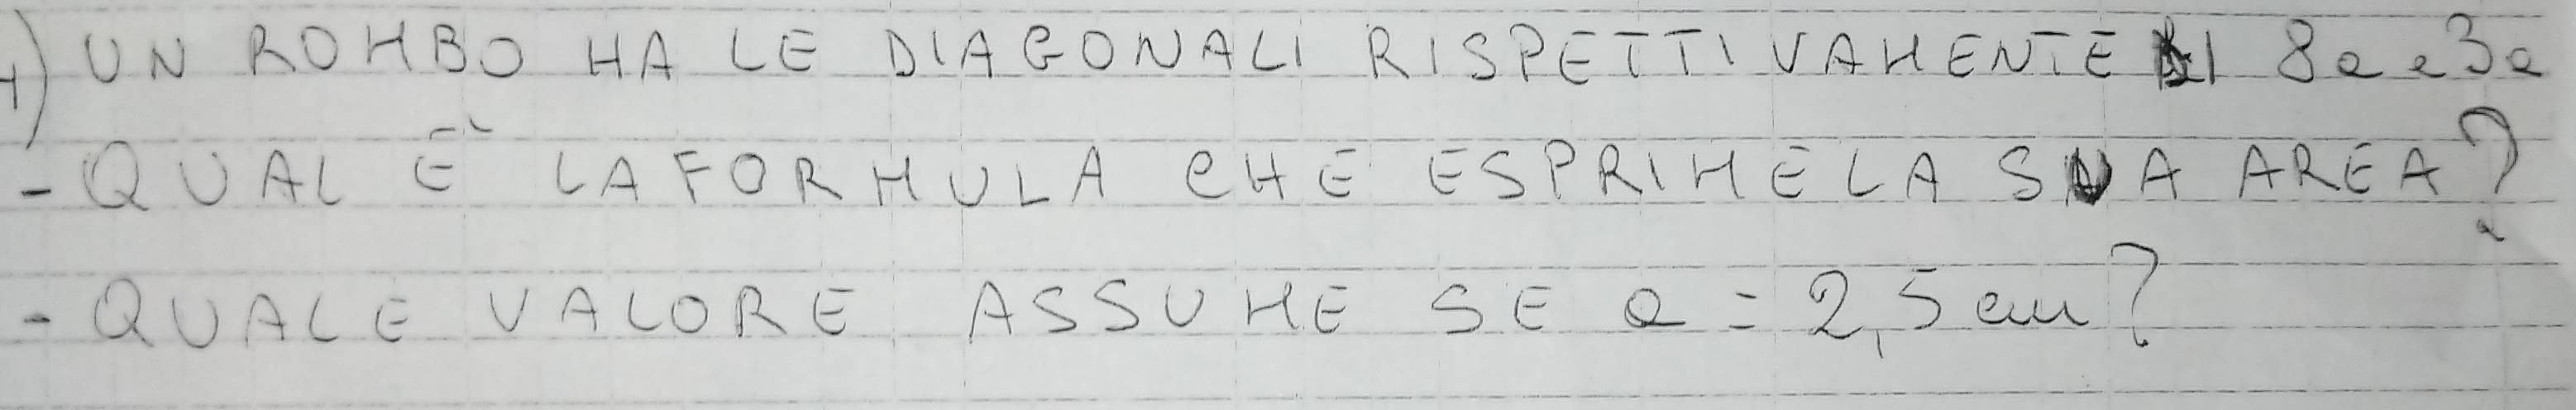 1) UN ROMBO HA LE DIAGONALI RISPETTIVAMENTE DI 8a e 3a
- QUAL È LA FORMULA CHE ESPRIME LA SUA AREA?
- QUALE VALORE ASSUME SE a = 2,5 cm?